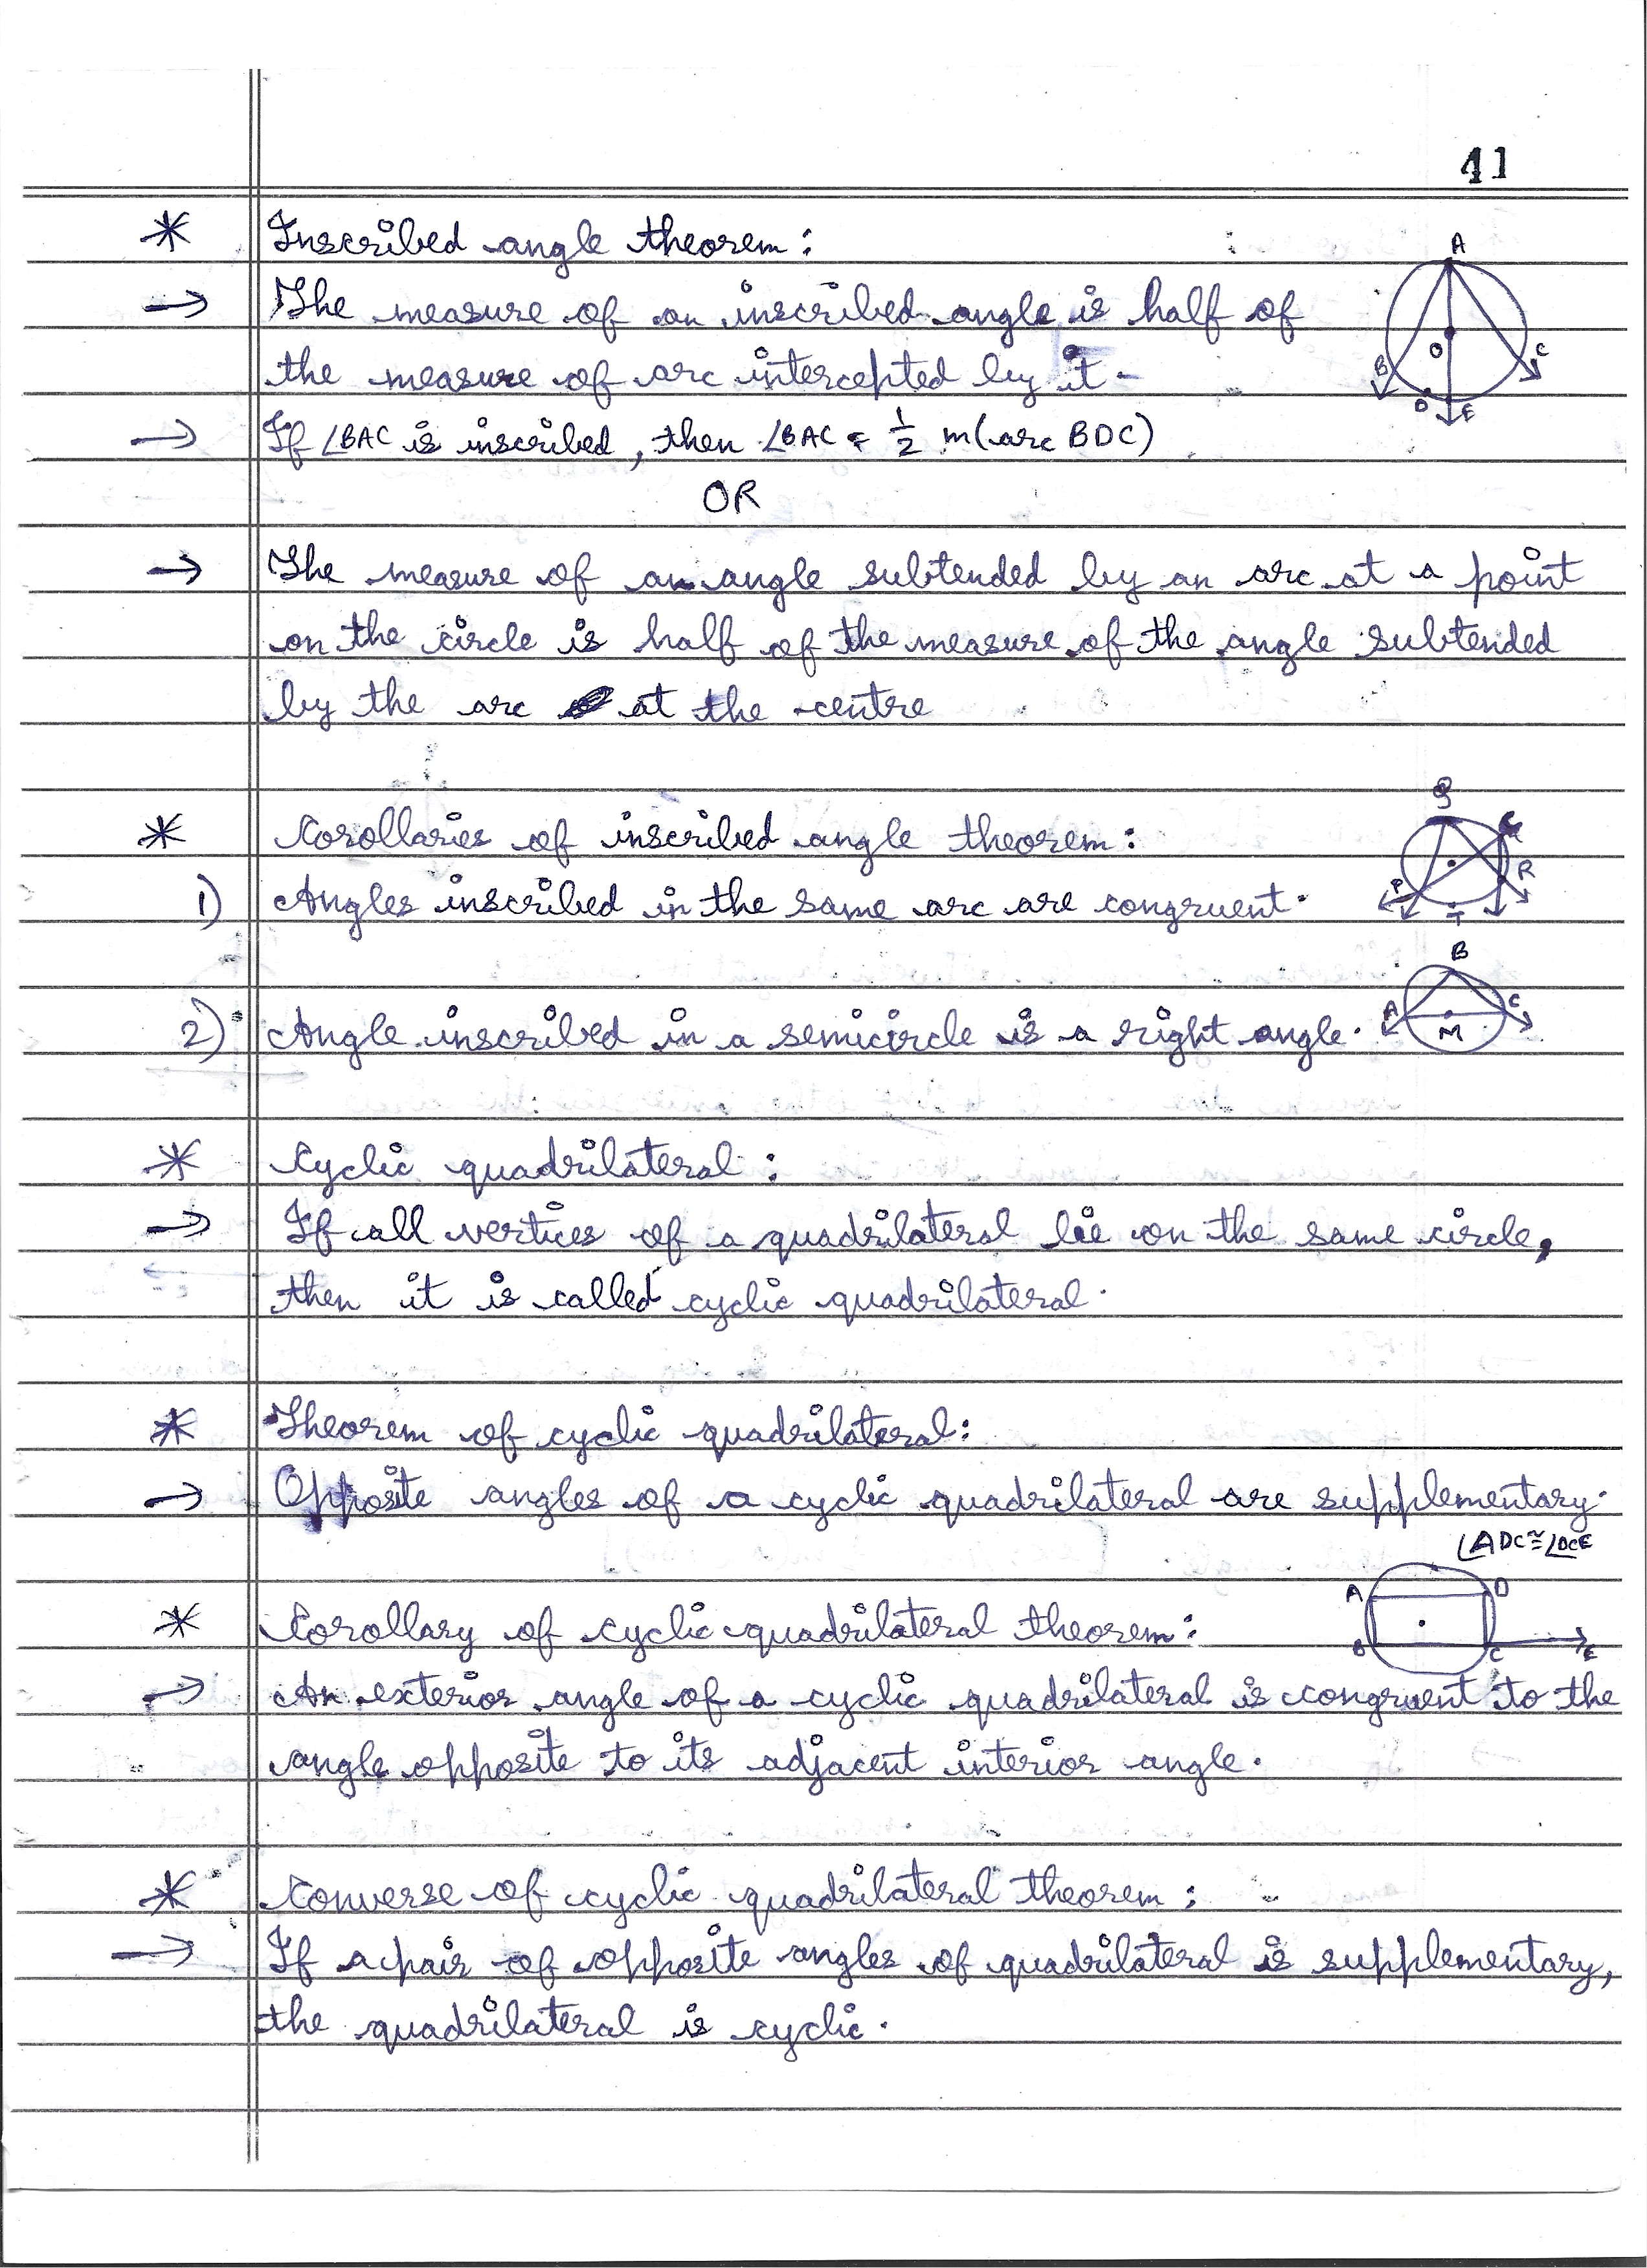 41
* Inscribed angle theorem :
→ The measure of an inscribed angle is half of
the measure of arc intercepted by it.
→ If ∠BAC is inscribed, then ∠BAC = 1/2 m(arc BDC)
OR
→ The measure of an angle subtended by an arc at a point
on the circle is half of the measure of the angle subtended
by the arc at the centre
* Corollaries of inscribed angle theorem :
1) Angles inscribed in the same arc are congruent.
2) Angle inscribed in a semicircle is a right angle.
* Cyclic quadrilateral :
→ If all vertices of a quadrilateral lie on the same circle,
then it is called cyclic quadrilateral.
* Theorem of cyclic quadrilateral :
→ Opposite angles of a cyclic quadrilateral are supplementary.
∠ADC ≅ ∠DCE
* Corollary of cyclic quadrilateral theorem :
→ An exterior angle of a cyclic quadrilateral is congruent to the
angle opposite to its adjacent interior angle.
* Converse of cyclic quadrilateral theorem :
→ If a pair of opposite angles of quadrilateral is supplementary,
the quadrilateral is cyclic.
A
B
O
C
D
E
P
R
T
B
A
C
M
A
D
B
C
E